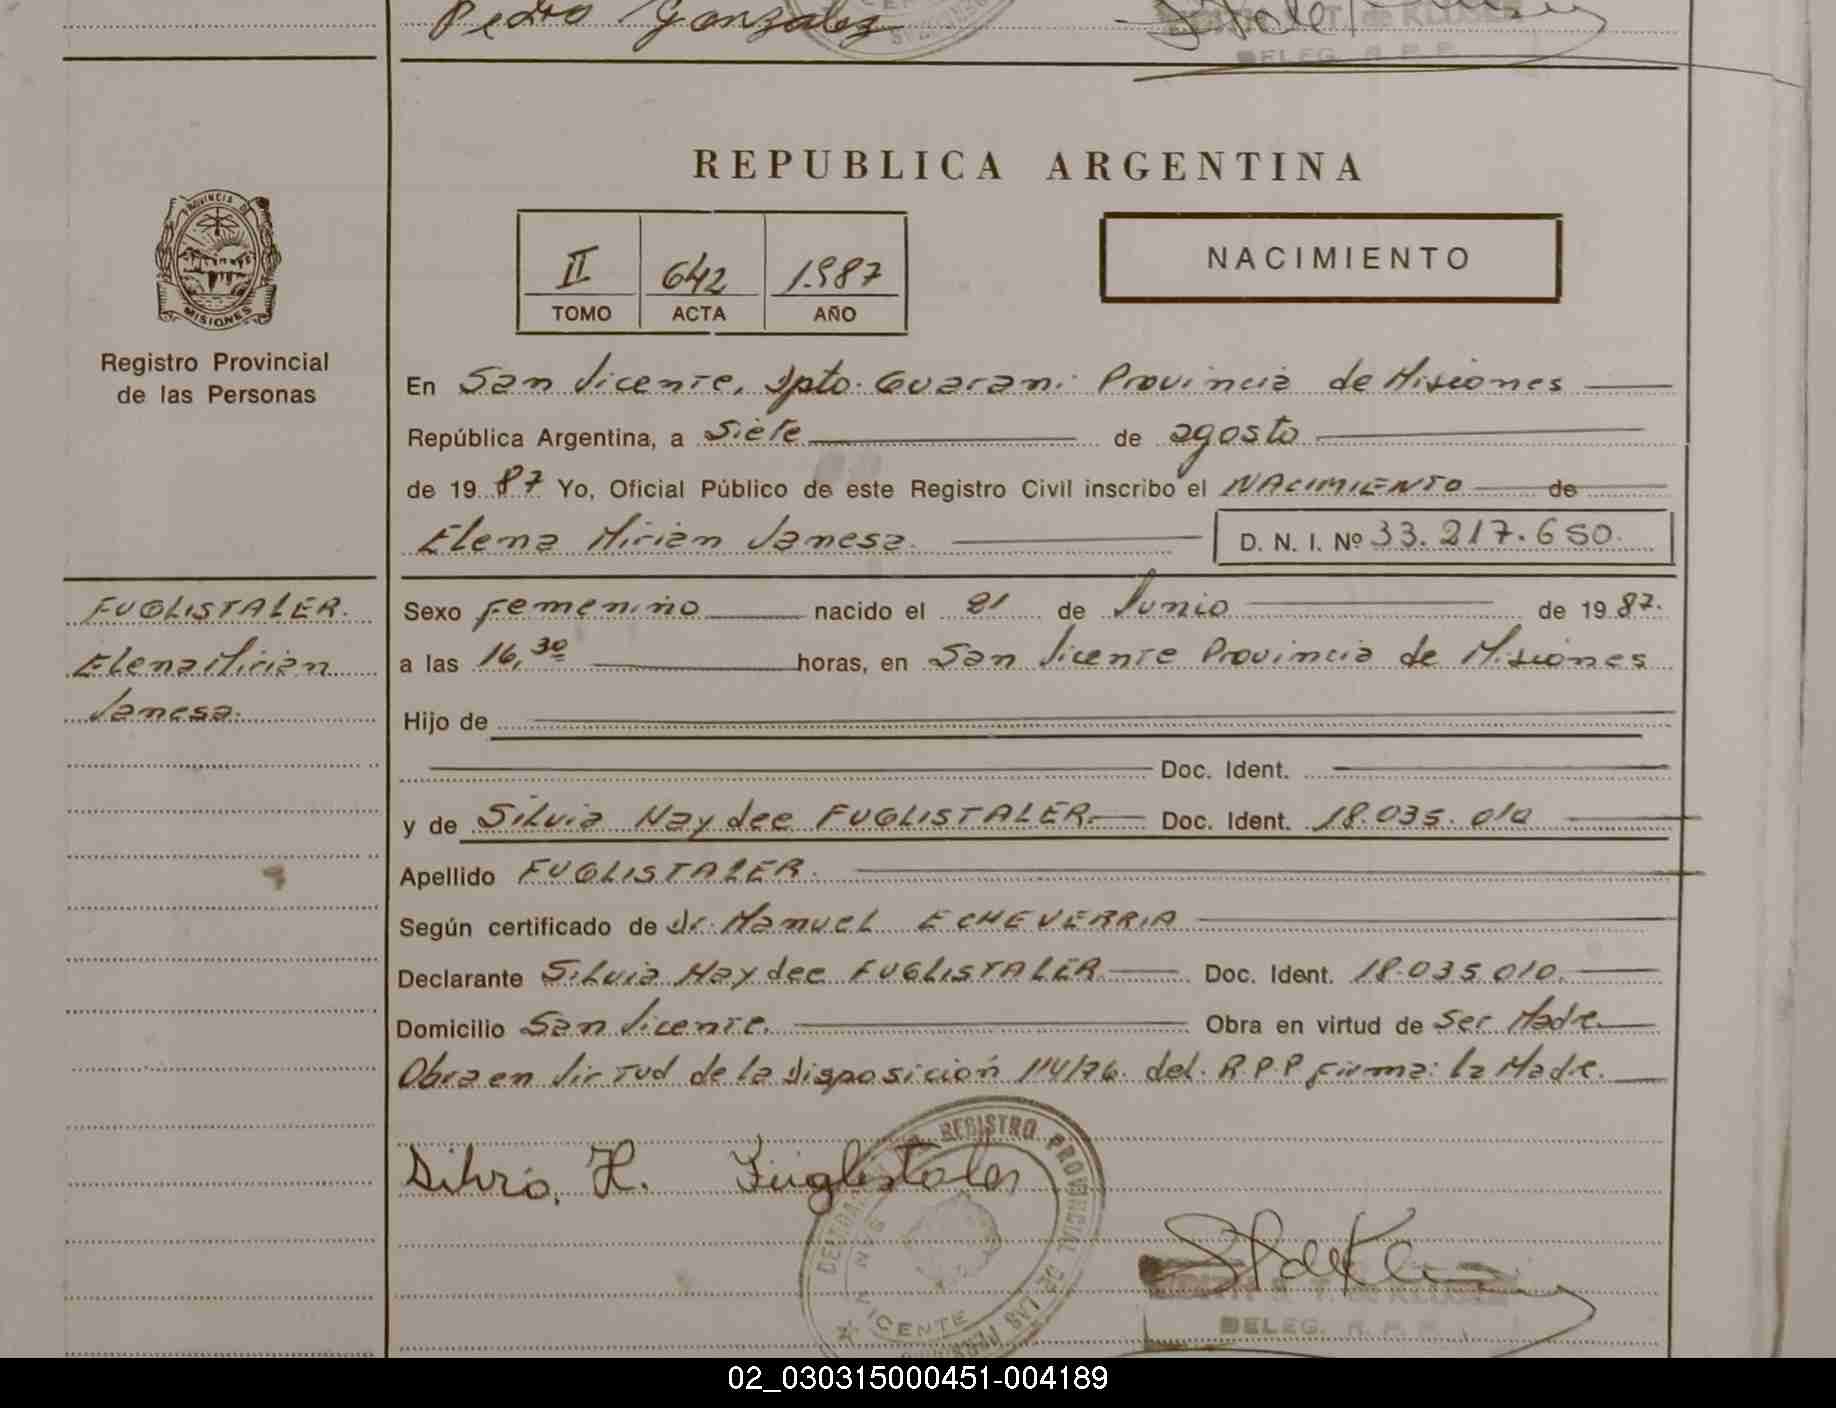 Pedro Gonzalez
T. de KLUSER
DELEG. R. P. P.
REPUBLICA ARGENTINA
PROVINCIA DE
MISIONES
Registro Provincial
de las Personas
II 642 1.987
TOMO ACTA AÑO
NACIMIENTO
En San Vicente, Dpto. Guarani Provincia de Misiones
República Argentina, a Siete de agosto
de 19 87 Yo, Oficial Público de este Registro Civil inscribo el NACIMIENTO de
Elena Mirian Vanesa. D. N. I. Nº 33.217.650.
FUGLISTALER.
Elena Mirian
Vanesa.
Sexo femenino nacido el 21 de Junio de 19 87.
a las 16,30 horas, en San Vicente Provincia de Misiones
Hijo de
Doc. Ident.
y de Silvia Haydee FUGLISTALER Doc. Ident. 18.035.010
Apellido FUGLISTALER.
Según certificado de Dr. Manuel ECHEVERRIA
Declarante Silvia Haydee FUGLISTALER Doc. Ident. 18.035.010.
Domicilio San Vicente. Obra en virtud de Ser Madre
Obra en Virtud de la Disposición 114/76. del. R.P.P firma: la Madre.
Silvia, H. Fuglistaler
REGISTRO PROVINCIAL DE LAS
VICENTE
T. de KLUSER
DELEG. R. P. P.
02_030315000451-004189